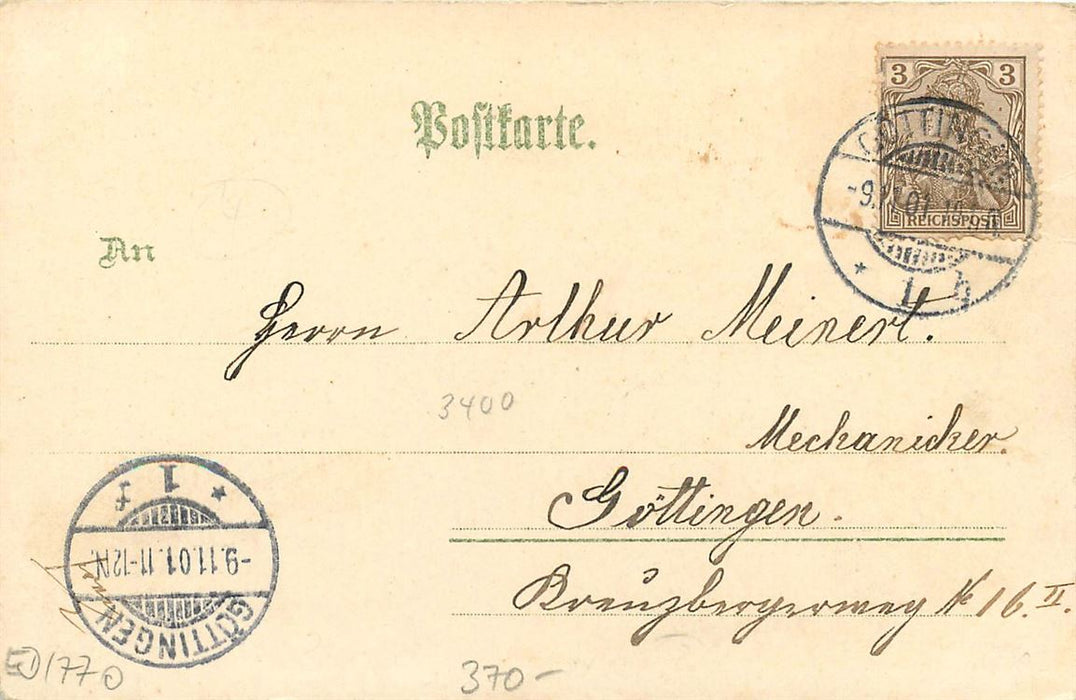 3 3
REICHSPOST
Postkarte.
GÖTTINGEN
-9.11.01
1
An
Herrn Arthur Meinert.
3400
Mechanicker.
Göttingen.
Kreuzbergerweg № 16 II.
1
-9.11.01.11-12N.
GÖTTINGEN
1770
370-